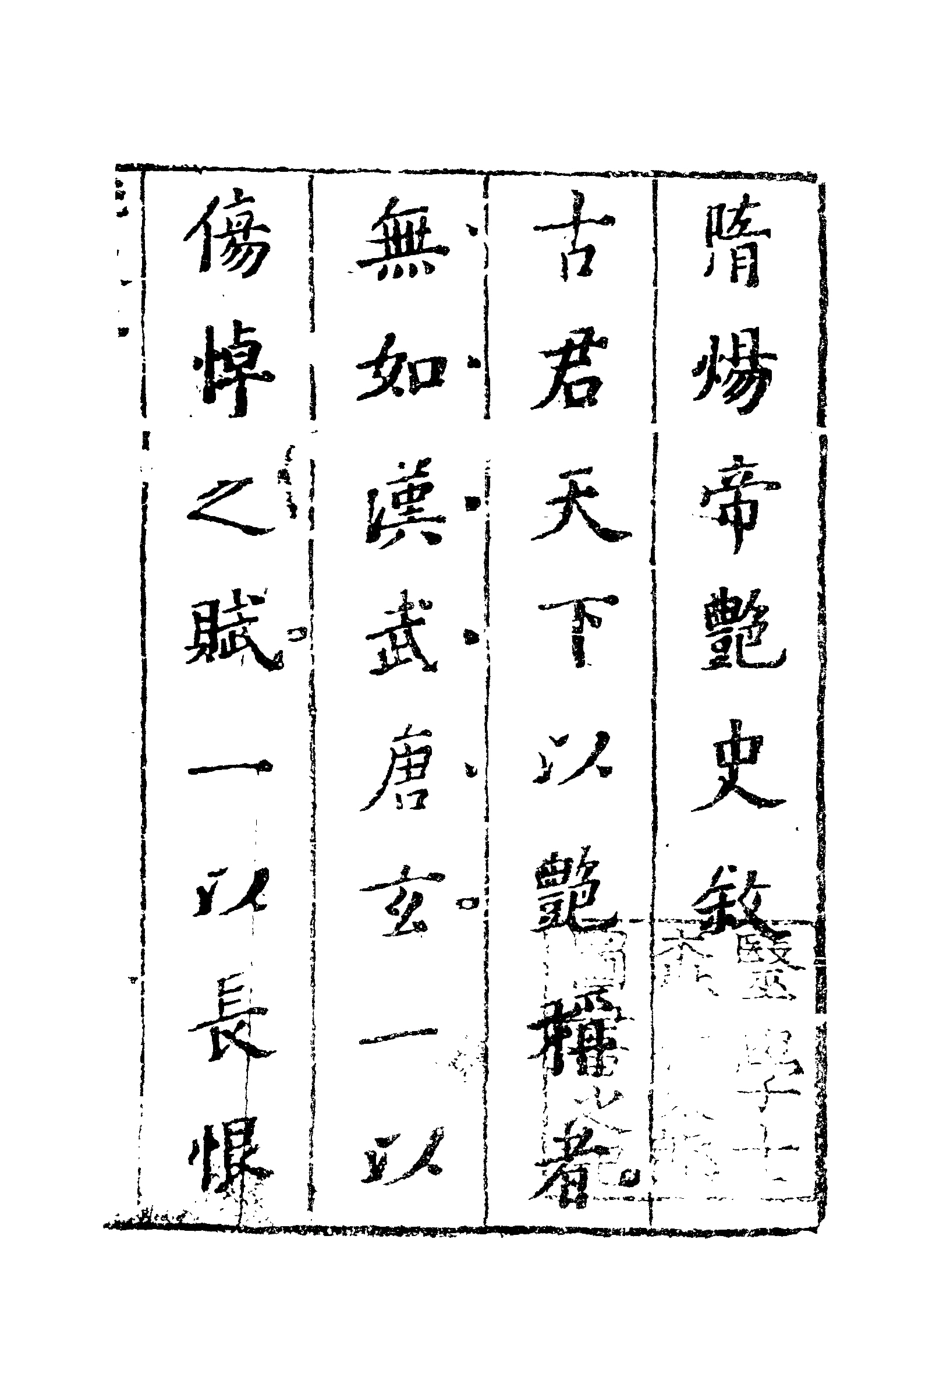 隋煬帝艷史敘
古君天下以艷稱者
無如漢武唐玄一以
傷悼之賦一以長恨